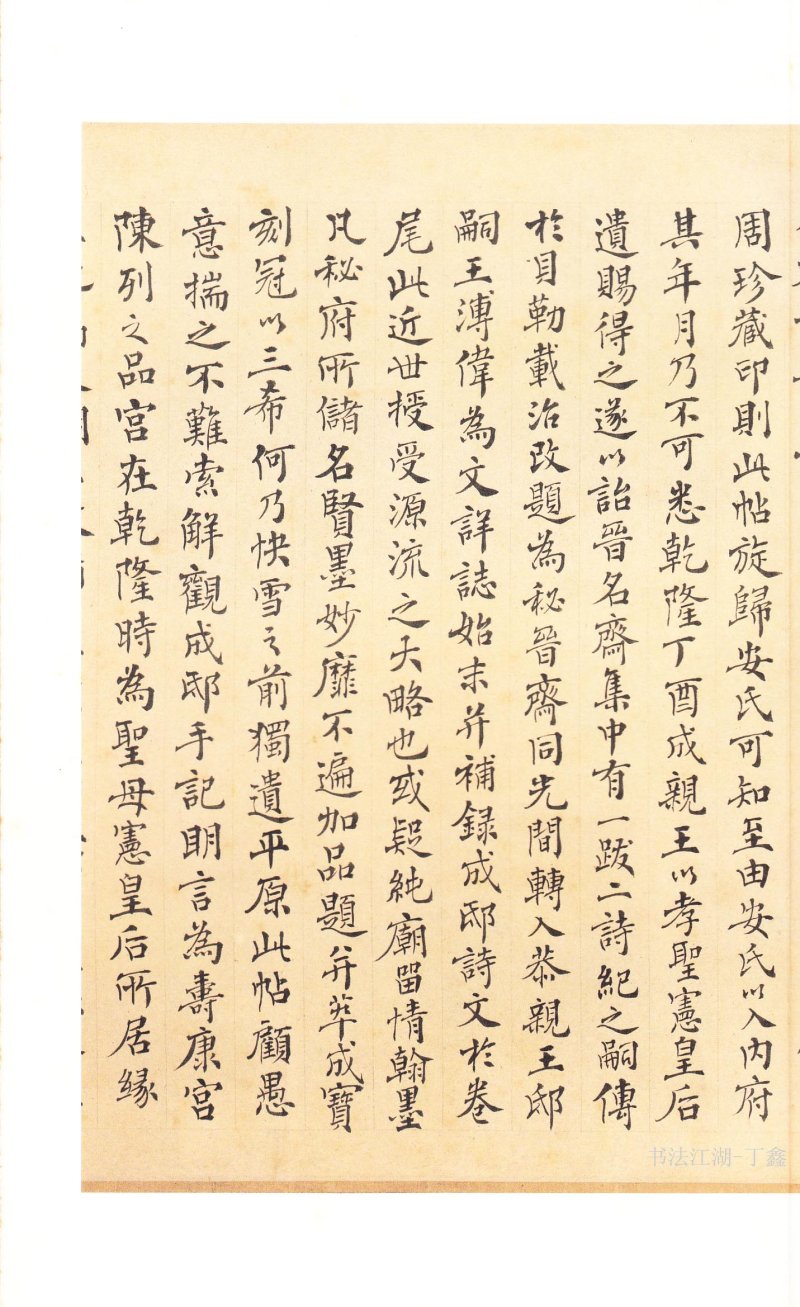 周珍藏印則此帖旋歸安氏可知至由安氏以入內府
其年月乃不可悉乾隆丁酉成親王以孝聖憲皇后
遺賜得之遂以詒晉名齋集中有一跋二詩紀之嗣傳
於貝勒載治改題為秘晉齋同光間轉入恭親王邸
嗣王溥偉為文詳誌始末并補錄成邸詩文於卷
尾此近世授受源流之大略也或疑純廟留情翰墨
凡秘府所儲名賢墨妙靡不遍加品題并萃成寶
刻冠以三希何乃快雪之前獨遺平原此帖顧愚
意揣之不難索解觀成邸手記明言為壽康宮
陳列之品宮在乾隆時為聖母憲皇后所居緣
书法江湖-丁鑫